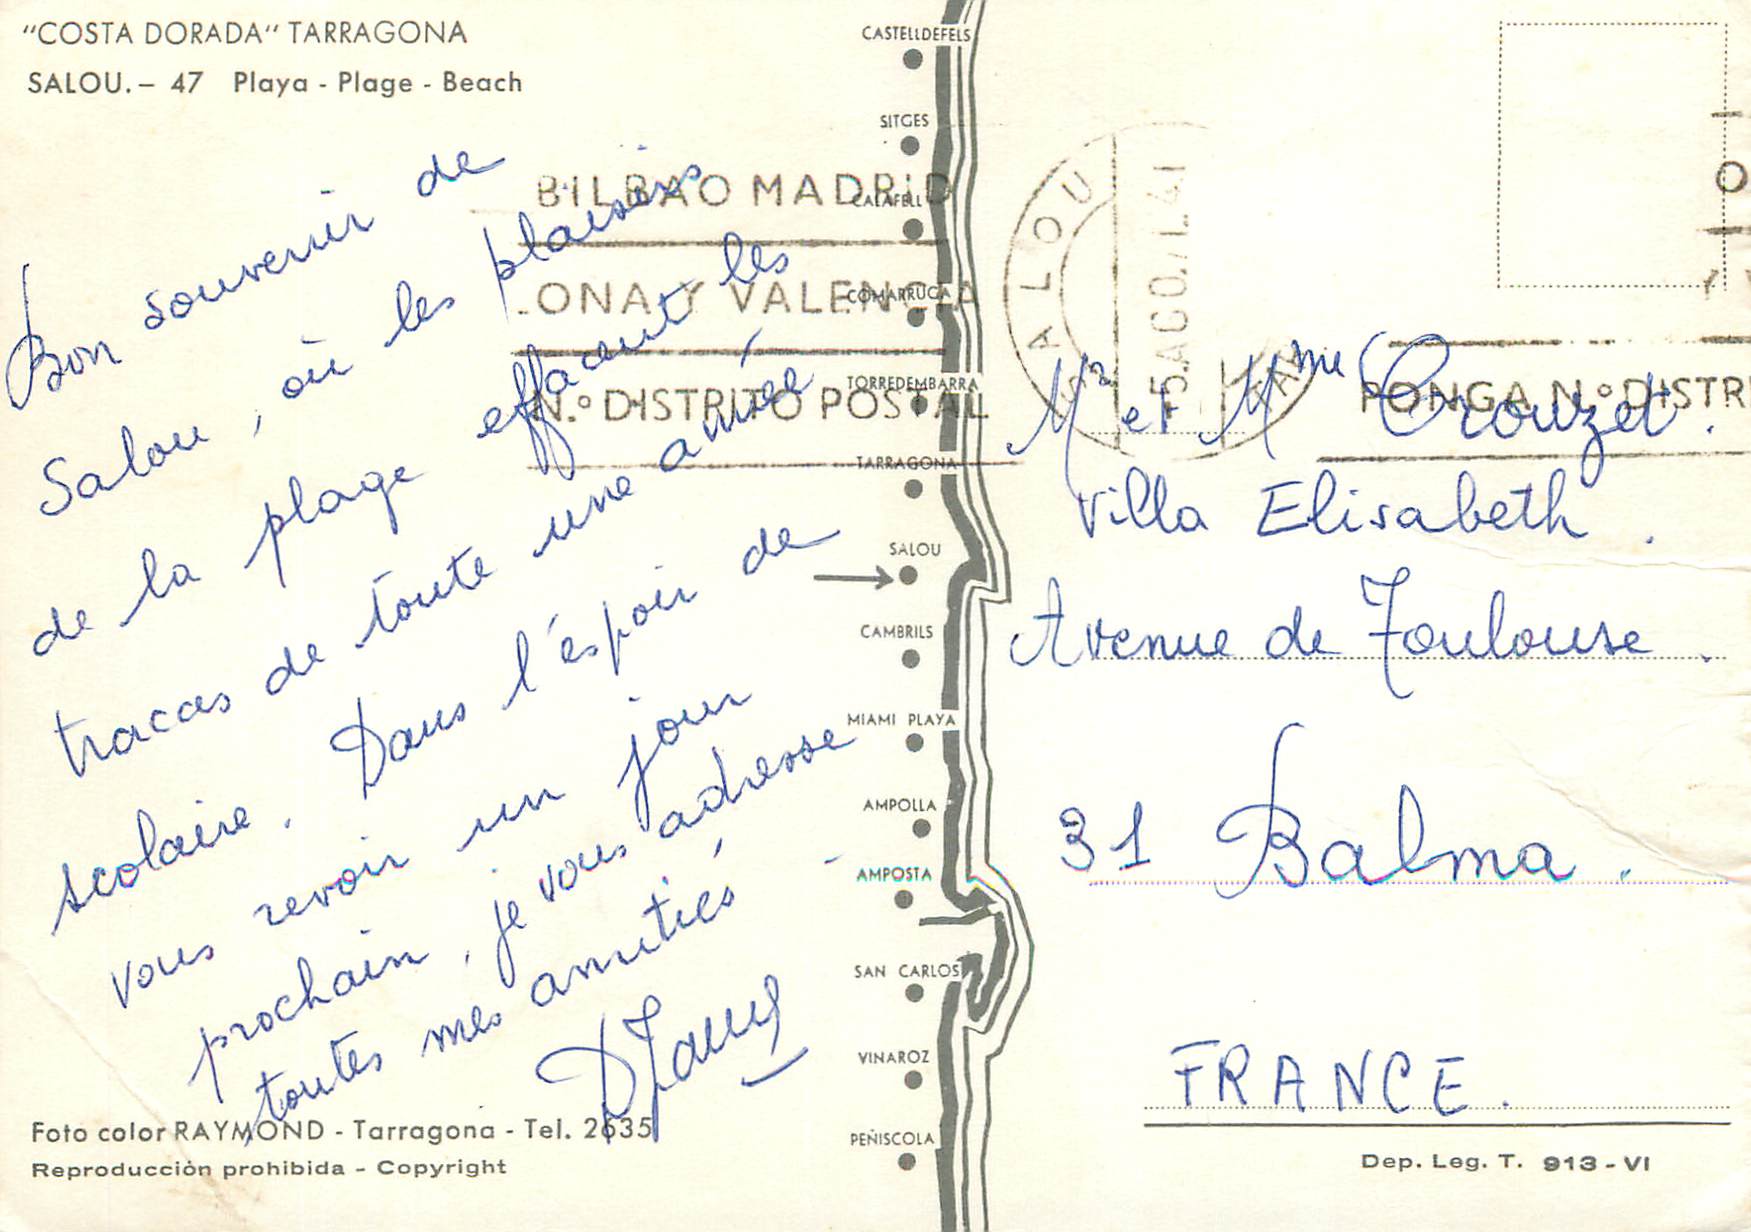 "COSTA DORADA" TARRAGONA
SALOU. – 47 Playa - Plage - Beach
Bon souvenir de
Salou, où les plaisirs
de la plage effacent les
traces de toute une année
scolaire. Dans l'espoir de
vous revoir un jour
prochain, je vous adresse
toutes mes amitiés
Foto color RAYMOND - Tarragona - Tel. 2635
Reproducción prohibida - Copyright
CASTELLDEFELS
SITGES
CALAFELL
COMARRUGA
TORREDEMBARRA
TARRAGONA
SALOU
CAMBRILS
MIAMI PLAYA
AMPOLLA
AMPOSTA
SAN CARLOS
VINAROZ
PEÑISCOLA
BILBAO MADRID
ONA Y VALENCIA
N.º DISTRITO POSTAL
SALOU
5 AGO.71
PONGA N.º DISTRI
Mr et Mme Crouzet.
Villa Elisabeth.
Avenue de Toulouse.
31 Balma.
FRANCE.
Dep. Leg. T. 913 - VI